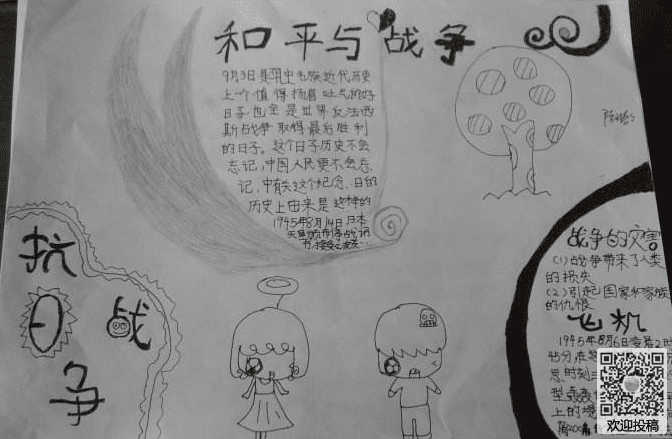 和平与战争
9月3日是 民族近代历史
上一个值得扬眉吐气的好
日子也全是世界反法西
斯战争取得最后胜利
的日子。这个日子历史不会
忘记,中国人民更不会忘
记,中有关这个纪念日的
历史上由来是这样的
1945年8月14日日本
天皇颁布停战诏
书,接受
抗
日战
争
战争的灾害。
(1)战争带来了人类
的损失
(2)引起国家和家族
的仇恨
飞机
1945年8月6日
45分
思时刻
型轰
上的
欢迎投稿